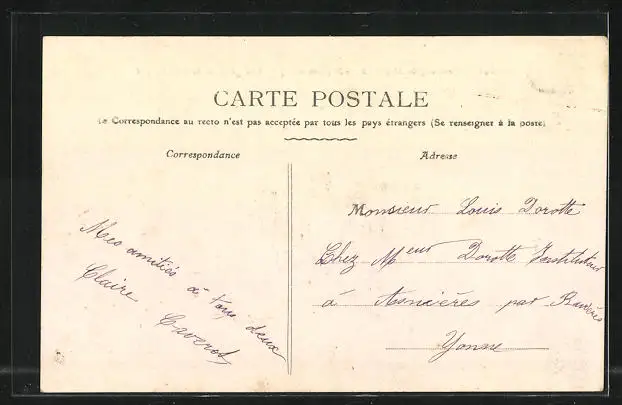 CARTE POSTALE
La Correspondance au recto n'est pas acceptée par tous les pays étrangers (Se renseigner à la poste)
Correspondance
Adresse
Mes amitiés à tous deux
Claire Caverot
Monsieur Louis Dorotte
Chez Meur Dorotte Instituteur
à Asnières par Ravières
Yonne